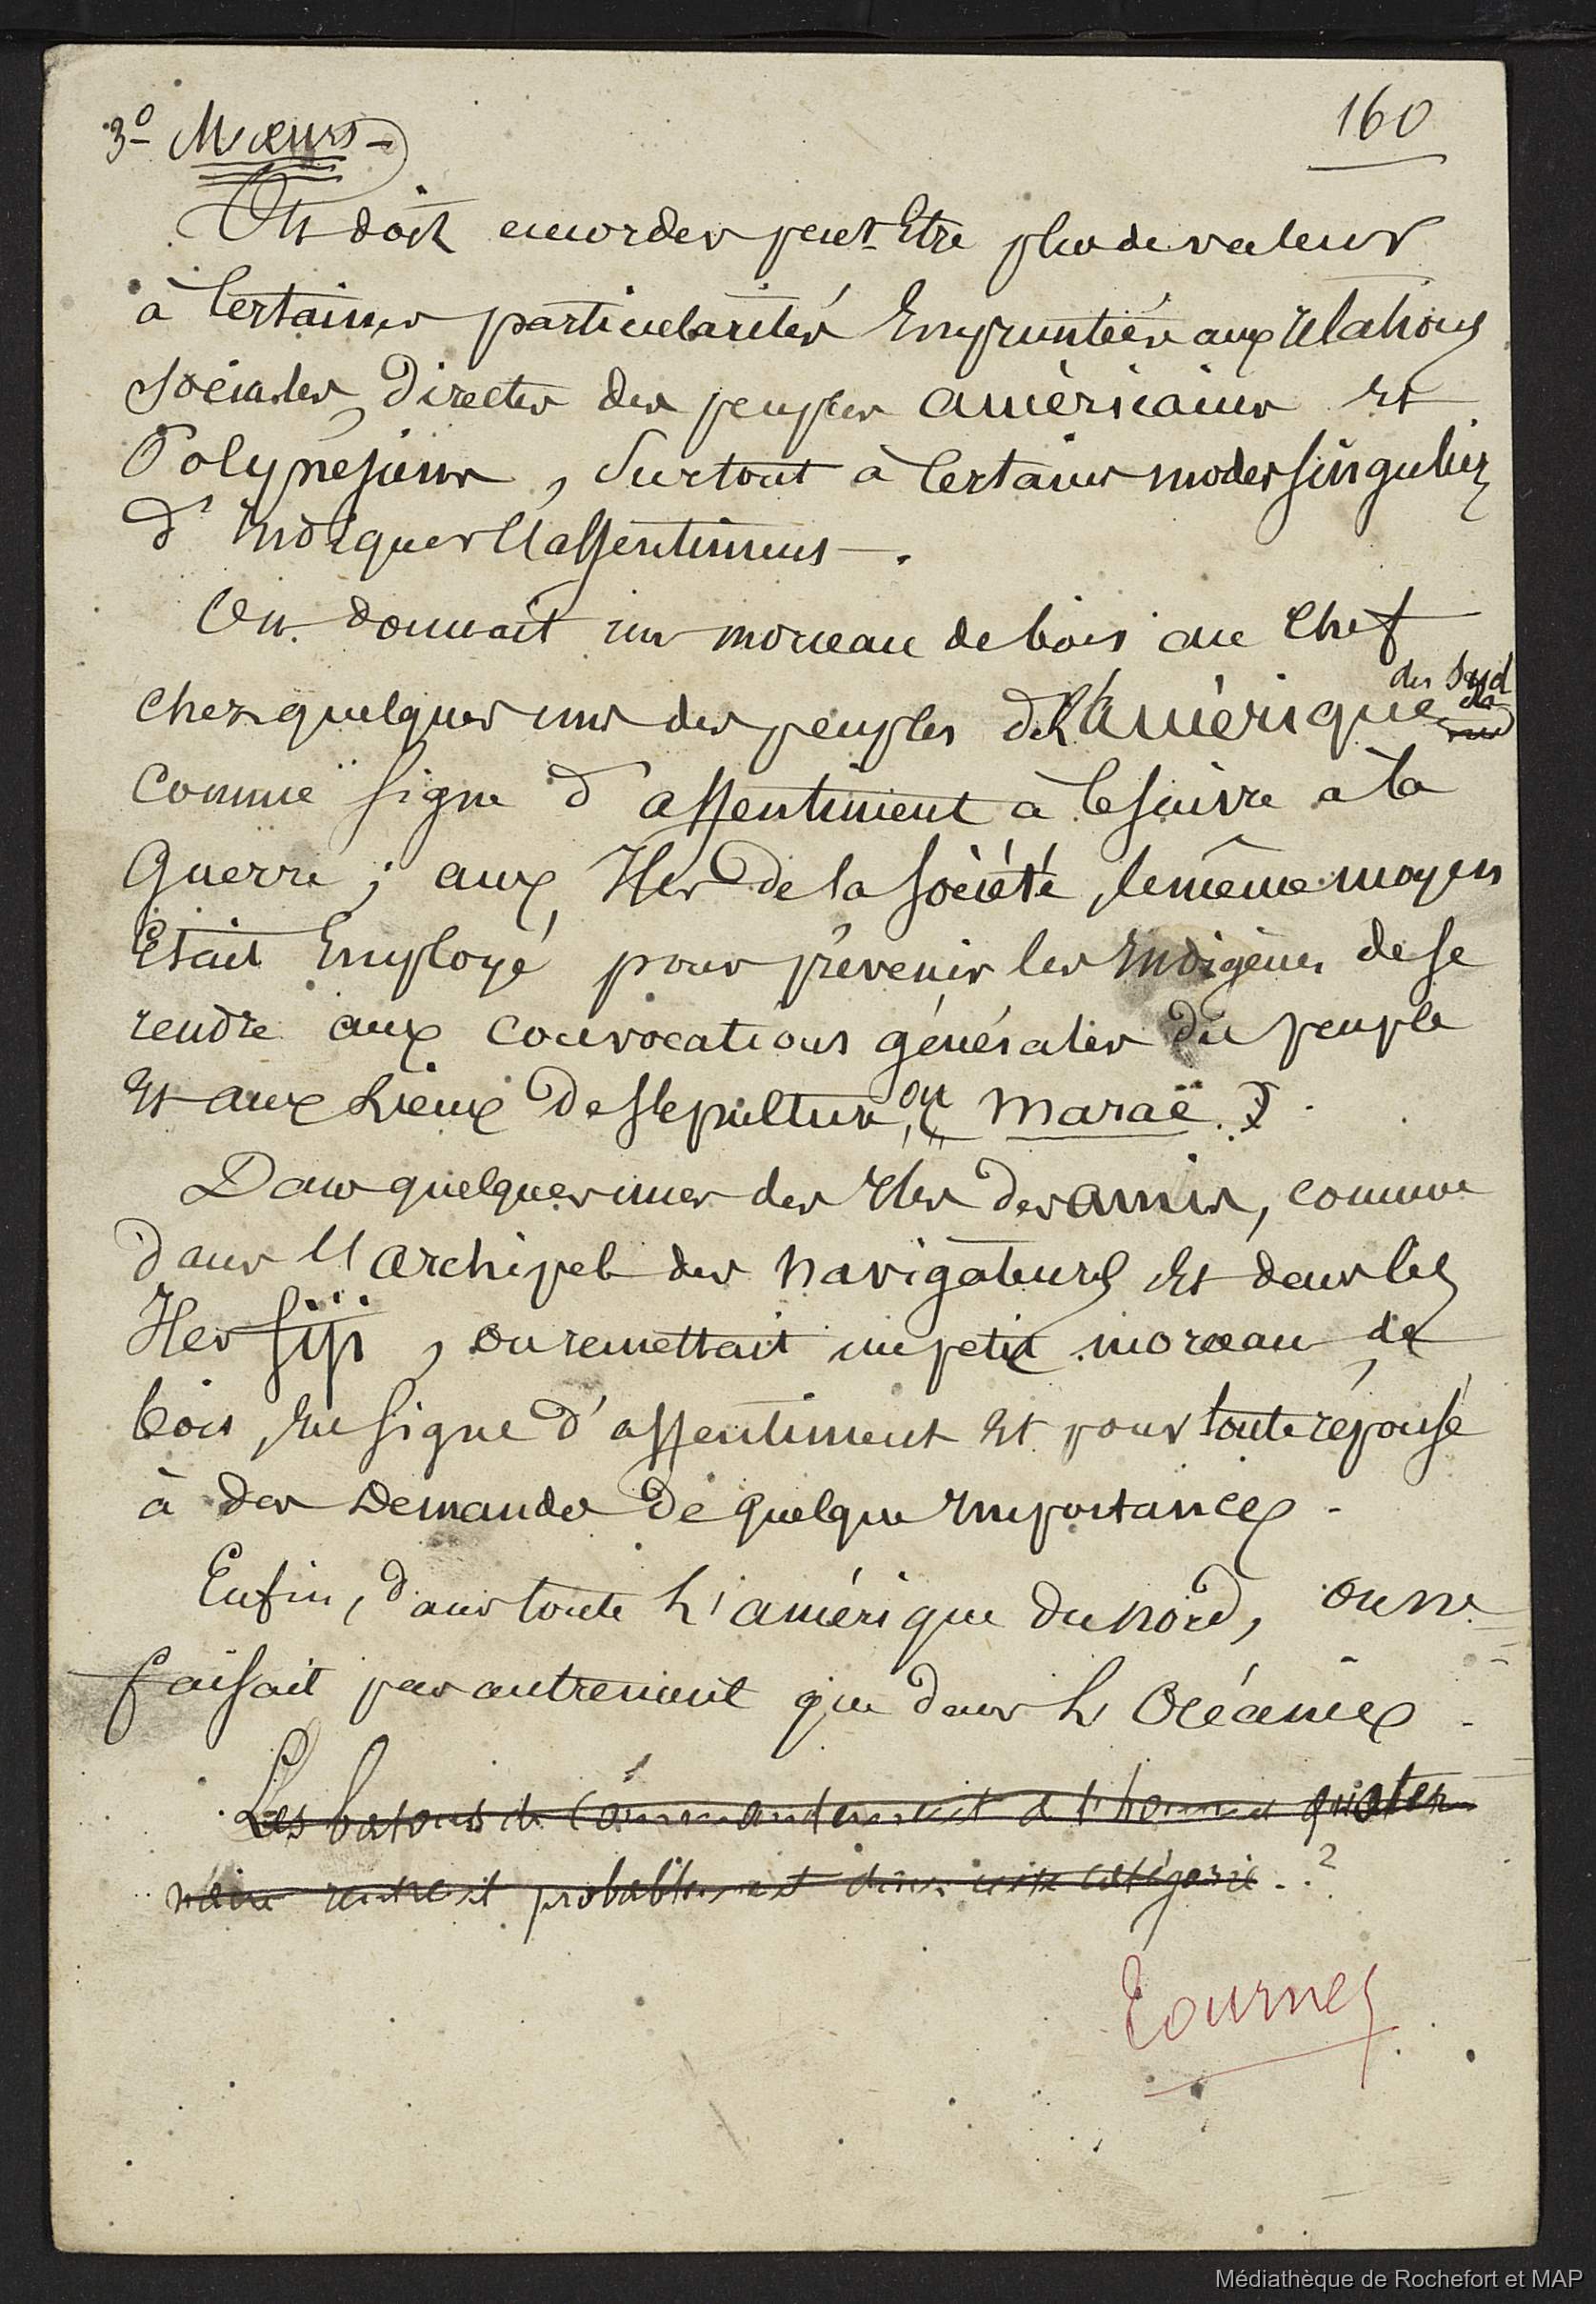 160
3º Mœurs -
On doit accorder peut-Etre plus de valeur
à Certaines particularités Empruntées aux relations
sociales, directes des peuples américains Et
Polynésiens, surtout à Certains modes singuliers
d'indiquer l'assentiment.
On donnait un morceau de bois au Chef
des Sud
chez quelques uns des peuples de l'amérique
comme signe d'assentiment à le suivre à la
Guerre ; aux Iles de la Société, le même moyen
Etait Employé pour prévenir les Indigènes de se
rendre aux convocations générales du peuple
Et aux Lieux de sépulture, ou (maraë).
Dans quelques unes des Iles des amis, comme
dans l'archipel des navigateurs Et dans les
Iles fiji, on remettait un petit morceau de
bois, En signe d'assentiment Et pour toute réponse
à des Demandes de quelque Importance.
Enfin, dans toute L'amérique du nord, on ne
faisait pas autrement que dans L'Océanie.
Les batons de Commandement de l'homme quater
naire rentrent probablement dans cette catégorie. ?
Tournez
Médiathèque de Rochefort et MAP